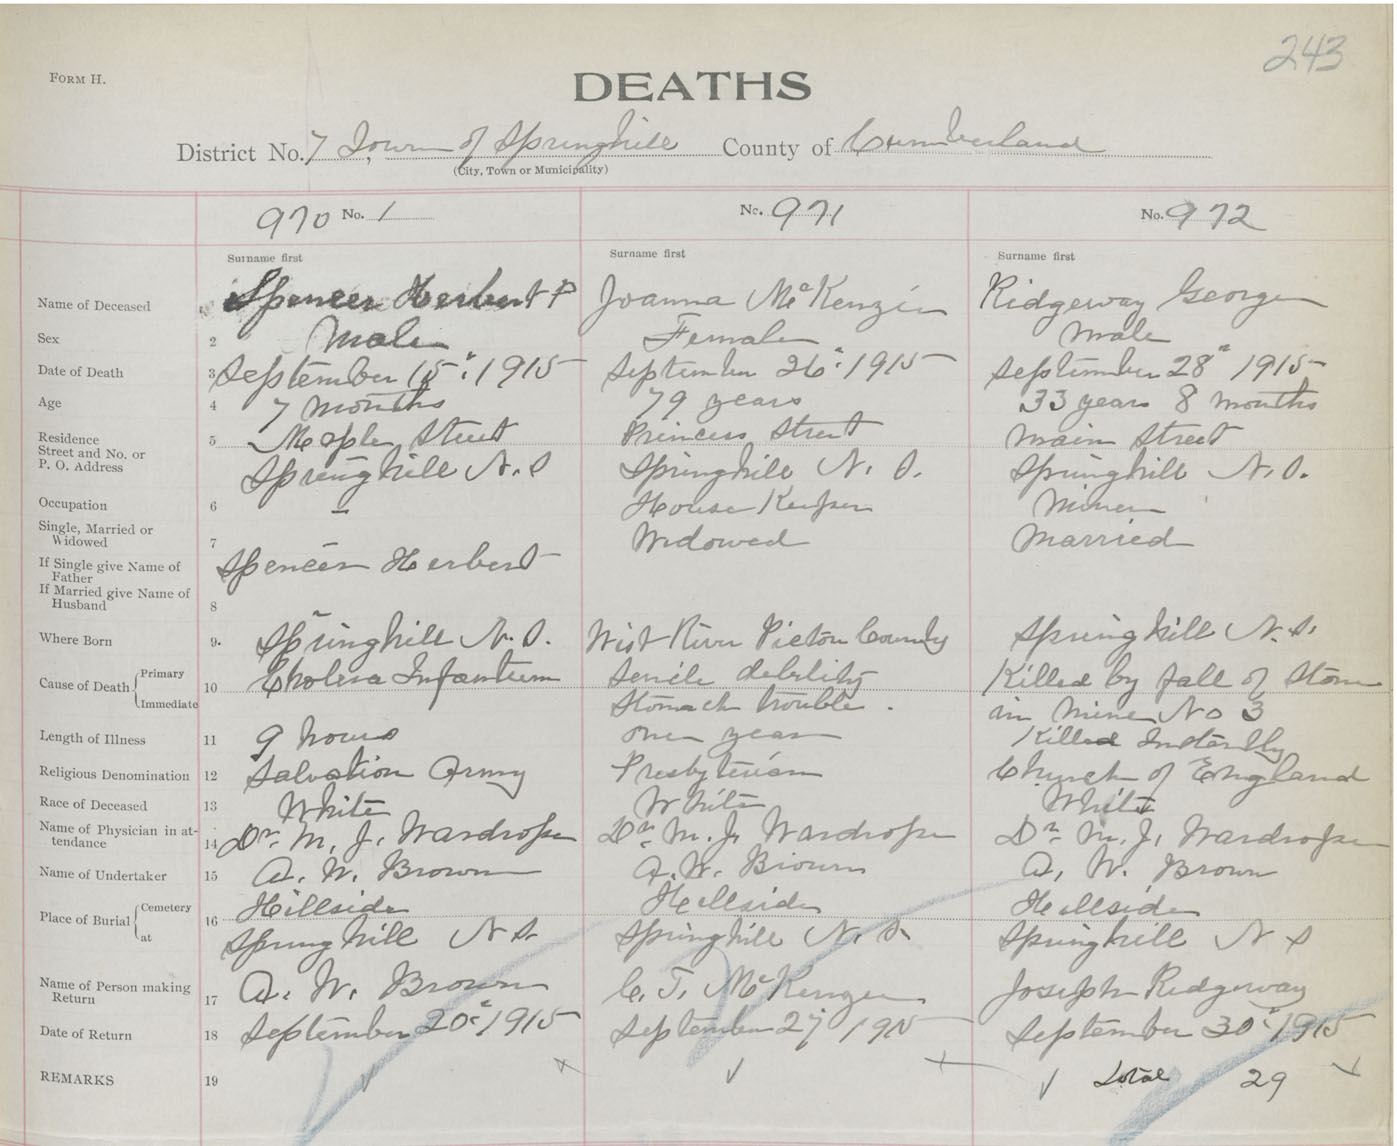 243
FORM H.
DEATHS
District No. 7, Town of Springhill County of Cumberland
(City, Town or Municipality)
970 No. 1 No. 971 No. 972
Surname first Surname first Surname first
Name of Deceased 1 Spencer Herbert P Joanna McKenzie Ridgeway George
Sex 2 Male Female Male
Date of Death 3 September 15" 1915 September 26" 1915 September 28" 1915
Age 4 7 months 79 years 33 years 8 months
Residence Street and No. or P. O. Address 5 Maple Street Princess Street Main Street
Springhill N.S Springhill N. S. Springhill N. S.
Occupation 6 – House Keeper Miner
Single, Married or Widowed 7 Widowed Married
If Single give Name of Father Spencer Herbert
If Married give Name of Husband 8
Where Born 9. Springhill N.S. West River Pictou County Springhill N.S.
Cause of Death { Primary 10 Cholera Infantum Senile debility Killed by fall of Stone
Immediate Stomach trouble. in Mine No 3
Length of Illness 11 9 hours one year Killed Instantly
Religious Denomination 12 Salvation Army Presbyterian Church of England
Race of Deceased 13 White White White
Name of Physician in attendance 14 Dr. M. J. Wardrope Dr. M. J. Wardrope Dr. M. J. Wardrope
Name of Undertaker 15 A. W. Brown A. W. Brown A. W. Brown
Place of Burial { Cemetery 16 Hillside Hillside Hillside
at Springhill N S. Springhill N. S. Springhill N S
Name of Person making Return 17 A. W. Brown C. T. McKenzie Joseph Ridgeway
Date of Return 18 September 20" 1915 September 27 1915 September 30" 1915
REMARKS 19 Total 29